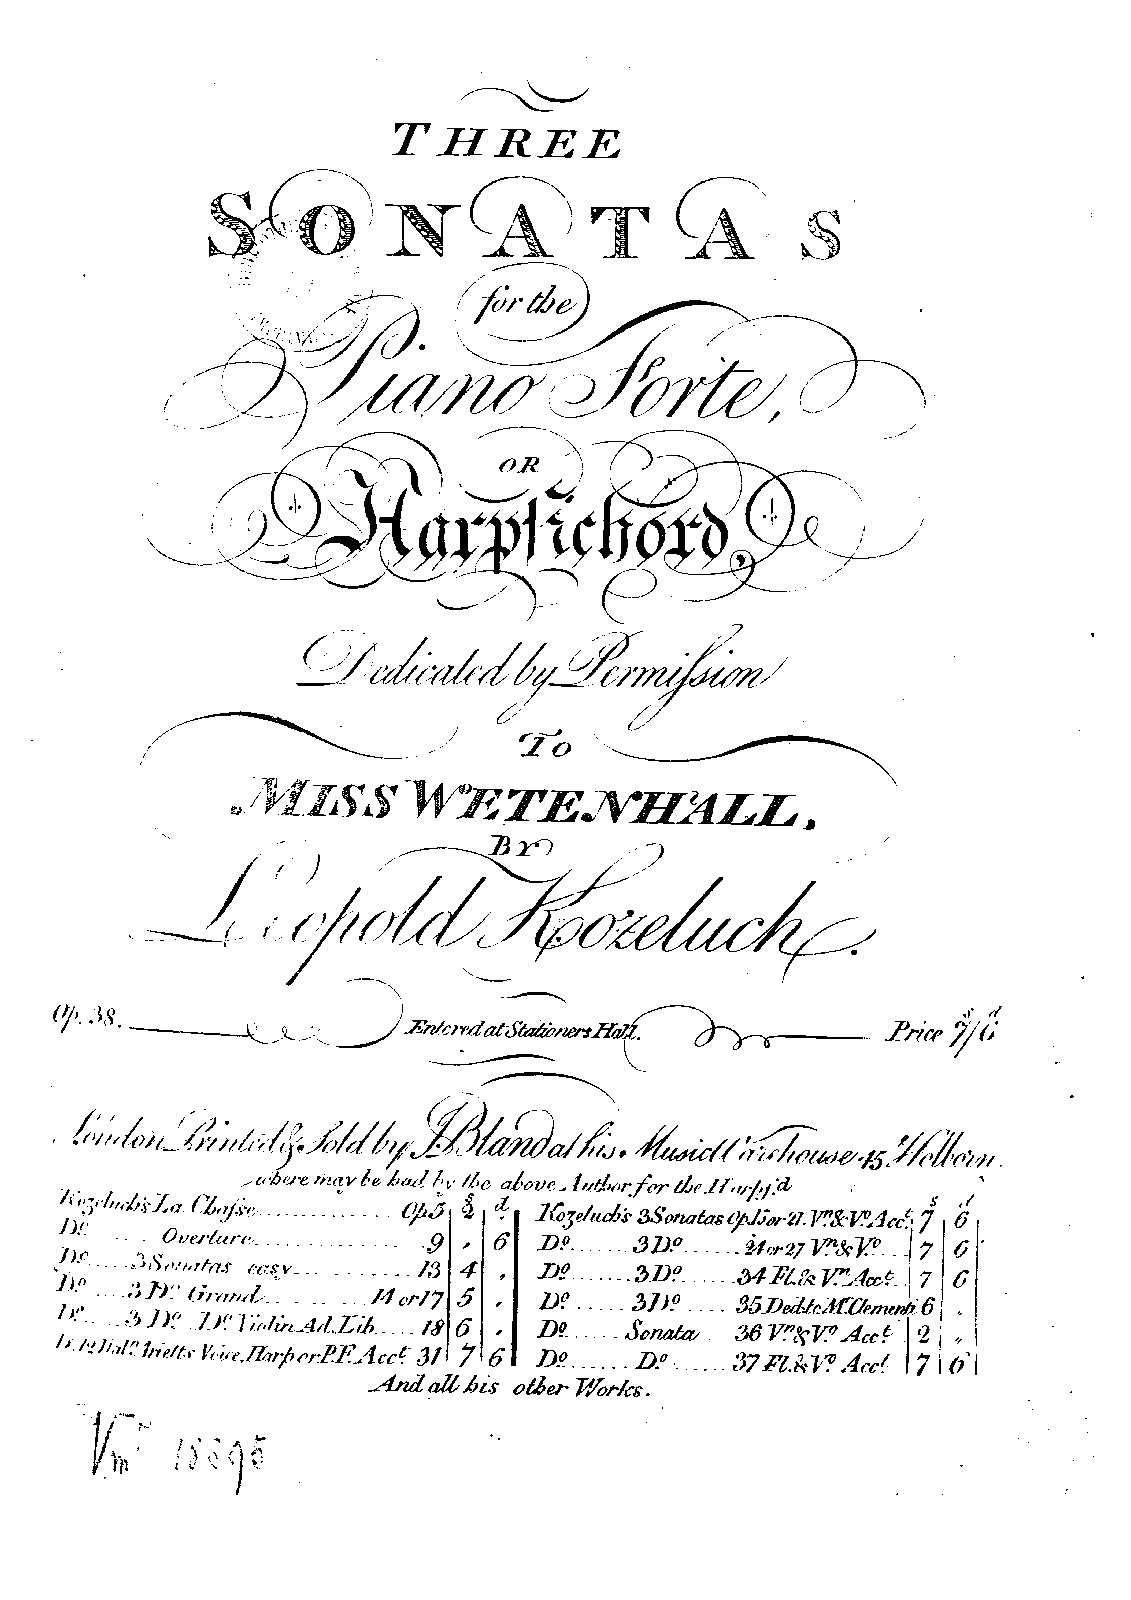 THREE
SONATAS
for the
Piano Forte,
OR
Harpsichord,
Dedicated by Permiſsion
To
MISS WETENHALL.
BY
Leopold Kozeluch.
Op. 38. Entered at Stationers Hall. Price 7/6 s d
London Printed & Sold by J. Bland at his Music Warehouse 45 Holborn.
where may be had by the above Author for the Harpsd
Kozeluch's La Chaſse Op 5 2 s d
Do Overture 9 , 6
Do 3 Sonatas easy 13 4 ,
Do 3 Do Grand 14 or 17 5 ,
Do 3 Do Do Violin Ad. Lib 18 6 ,
Do 12 Ital. Arietts Voice, Harp or P.F. Acct. 31 7 6
Kozeluch's 3 Sonatas Op 15 or 21. Vn. & Vo. Acct. 7 6 s d
Do 3 Do 24 or 27 Vn & Vo. 7 6
Do 3 Do 34 Fl. & Vn. Acct. 7 6
Do 3 Do 35 Ded. to Mr Clementi 6 ,
Do Sonata 36 Vn. & Vo Acct. 2 ,,
Do Do 37 Fl. & Vo. Acct. 7 6
And all his other Works.
Vm